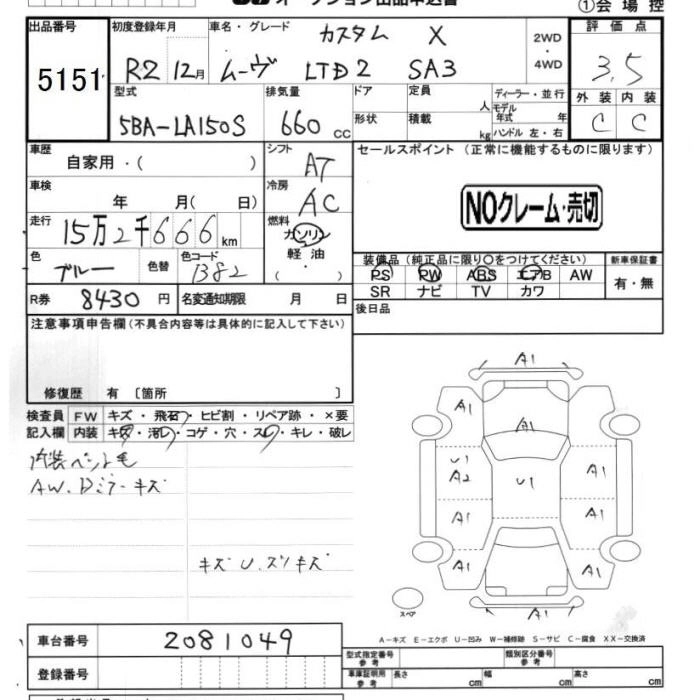 オークション出品申込書
①会場控
出品番号 初度登録年月 車名・グレード カスタム X 2WD・4WD 評価点
5151 R2 12月 ムーヴ LTD2 SA3 3.5
型式 排気量 ドア 定員 人 ディーラー・並行 外装 内装
5BA-LA150S 660cc 形状 積載 kg モデル年式 年 C C
ハンドル 左・右
車歴 シフト セールスポイント（正常に機能するものに限ります）
自家用・( ) AT
車検 冷房 NOクレーム・売切
年 月( 日) AC
走行 燃料
15万2千666km ガソリン
色 色替 色コード 軽油
ブルー 1382 ・( )
装備品（純正品に限り○をつけてください） 新車保証書
PS PW ABS エアB AW 有・無
SR ナビ TV カワ
R券 8430円 名変通知期限 月 日 後日品
注意事項申告欄（不具合内容等は具体的に記入して下さい）
修復歴 有 〔箇所 〕
検査員 FW キズ・飛石・ヒビ割・リペア跡・×要
記入欄 内装 キズ・汚レ・コゲ・穴・スレ・キレ・破レ
内装ペット毛
AW、Dミラーキズ
キズU、スリキズ
A1
A1 A1
U1 A1
A2 U1
A1 A1
A1 A1
A1
スペア
A-キズ E-エクボ U-凹み W-補修跡 S-サビ C-腐食 XX-交換済
車台番号 2081049
型式指定番号 参考 類別区分番号 参考
登録番号 車庫証明用 参考 長さ cm 幅 cm 高さ cm